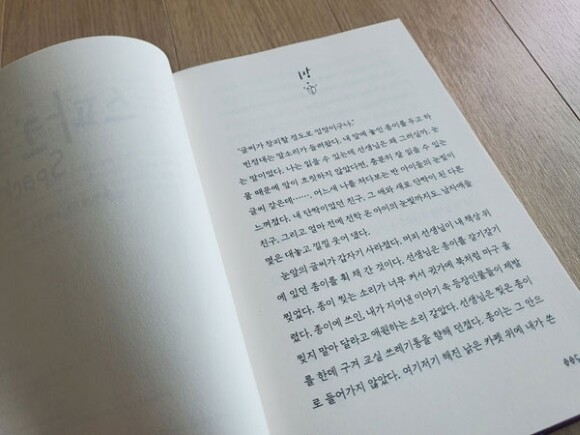 방
"글씨가 창피할 정도로 엉망이구나."
빈정대는 말소리가 들려왔다. 내 앞에 놓인 종이를 두고 하
는 말이었다. 나는 읽을 수 있는데 선생님은 왜 그러실까. 눈
물 때문에 앞이 흐릿하지 않았다면, 충분히 잘 읽을 수 있는
글씨 같은데……. 어느새 나를 쳐다보는 반 아이들의 눈빛이
느껴졌다. 내 단짝이었던 친구, 그 애와 새로 단짝이 된 다른
친구, 그리고 얼마 전에 전학 온 아이의 눈빛까지도. 남자애들
몇은 대놓고 낄낄 웃어 댔다.
눈앞의 글씨가 갑자기 사라졌다. 머피 선생님이 내 책상 위
에 있던 종이를 휙 채 간 것이다. 선생님은 종이를 갈기갈기
찢었다. 종이 찢는 소리가 너무 커서 귓가에 북처럼 마구 울
렸다. 종이에 쓰인, 내가 지어낸 이야기 속 등장인물들이 제발
찢지 말아 달라고 애원하는 소리 같았다. 선생님은 찢은 종이
를 한데 구겨 교실 쓰레기통을 향해 던졌다. 종이는 그 안으
로 들어가지 않았다. 여기저기 해진 낡은 카펫 위에 내가 쓴
스파크